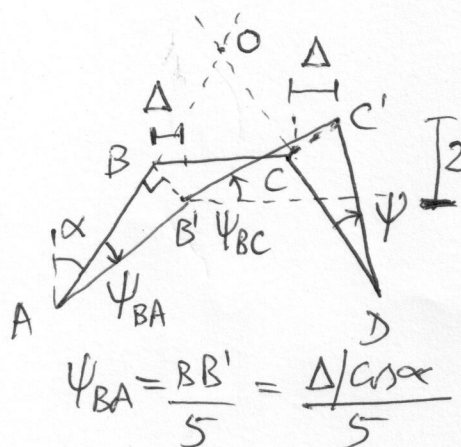 O
Δ
Δ
C'
B
C
2
α
B'
ψ_BC
ψ
ψ_BA
A
D
ψ_BA = BB'/5 = Δ/cosα/5